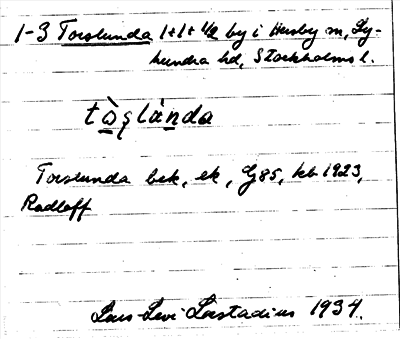 1-3 Torslunda 1+1+1/2 by i Husby m, Ly-
hundra hd, Stockholms l.
tòşlànda
Torslunda bek, ek, G85, kb 1923,
Radloff
Lars-Levi Læstadius 1934.